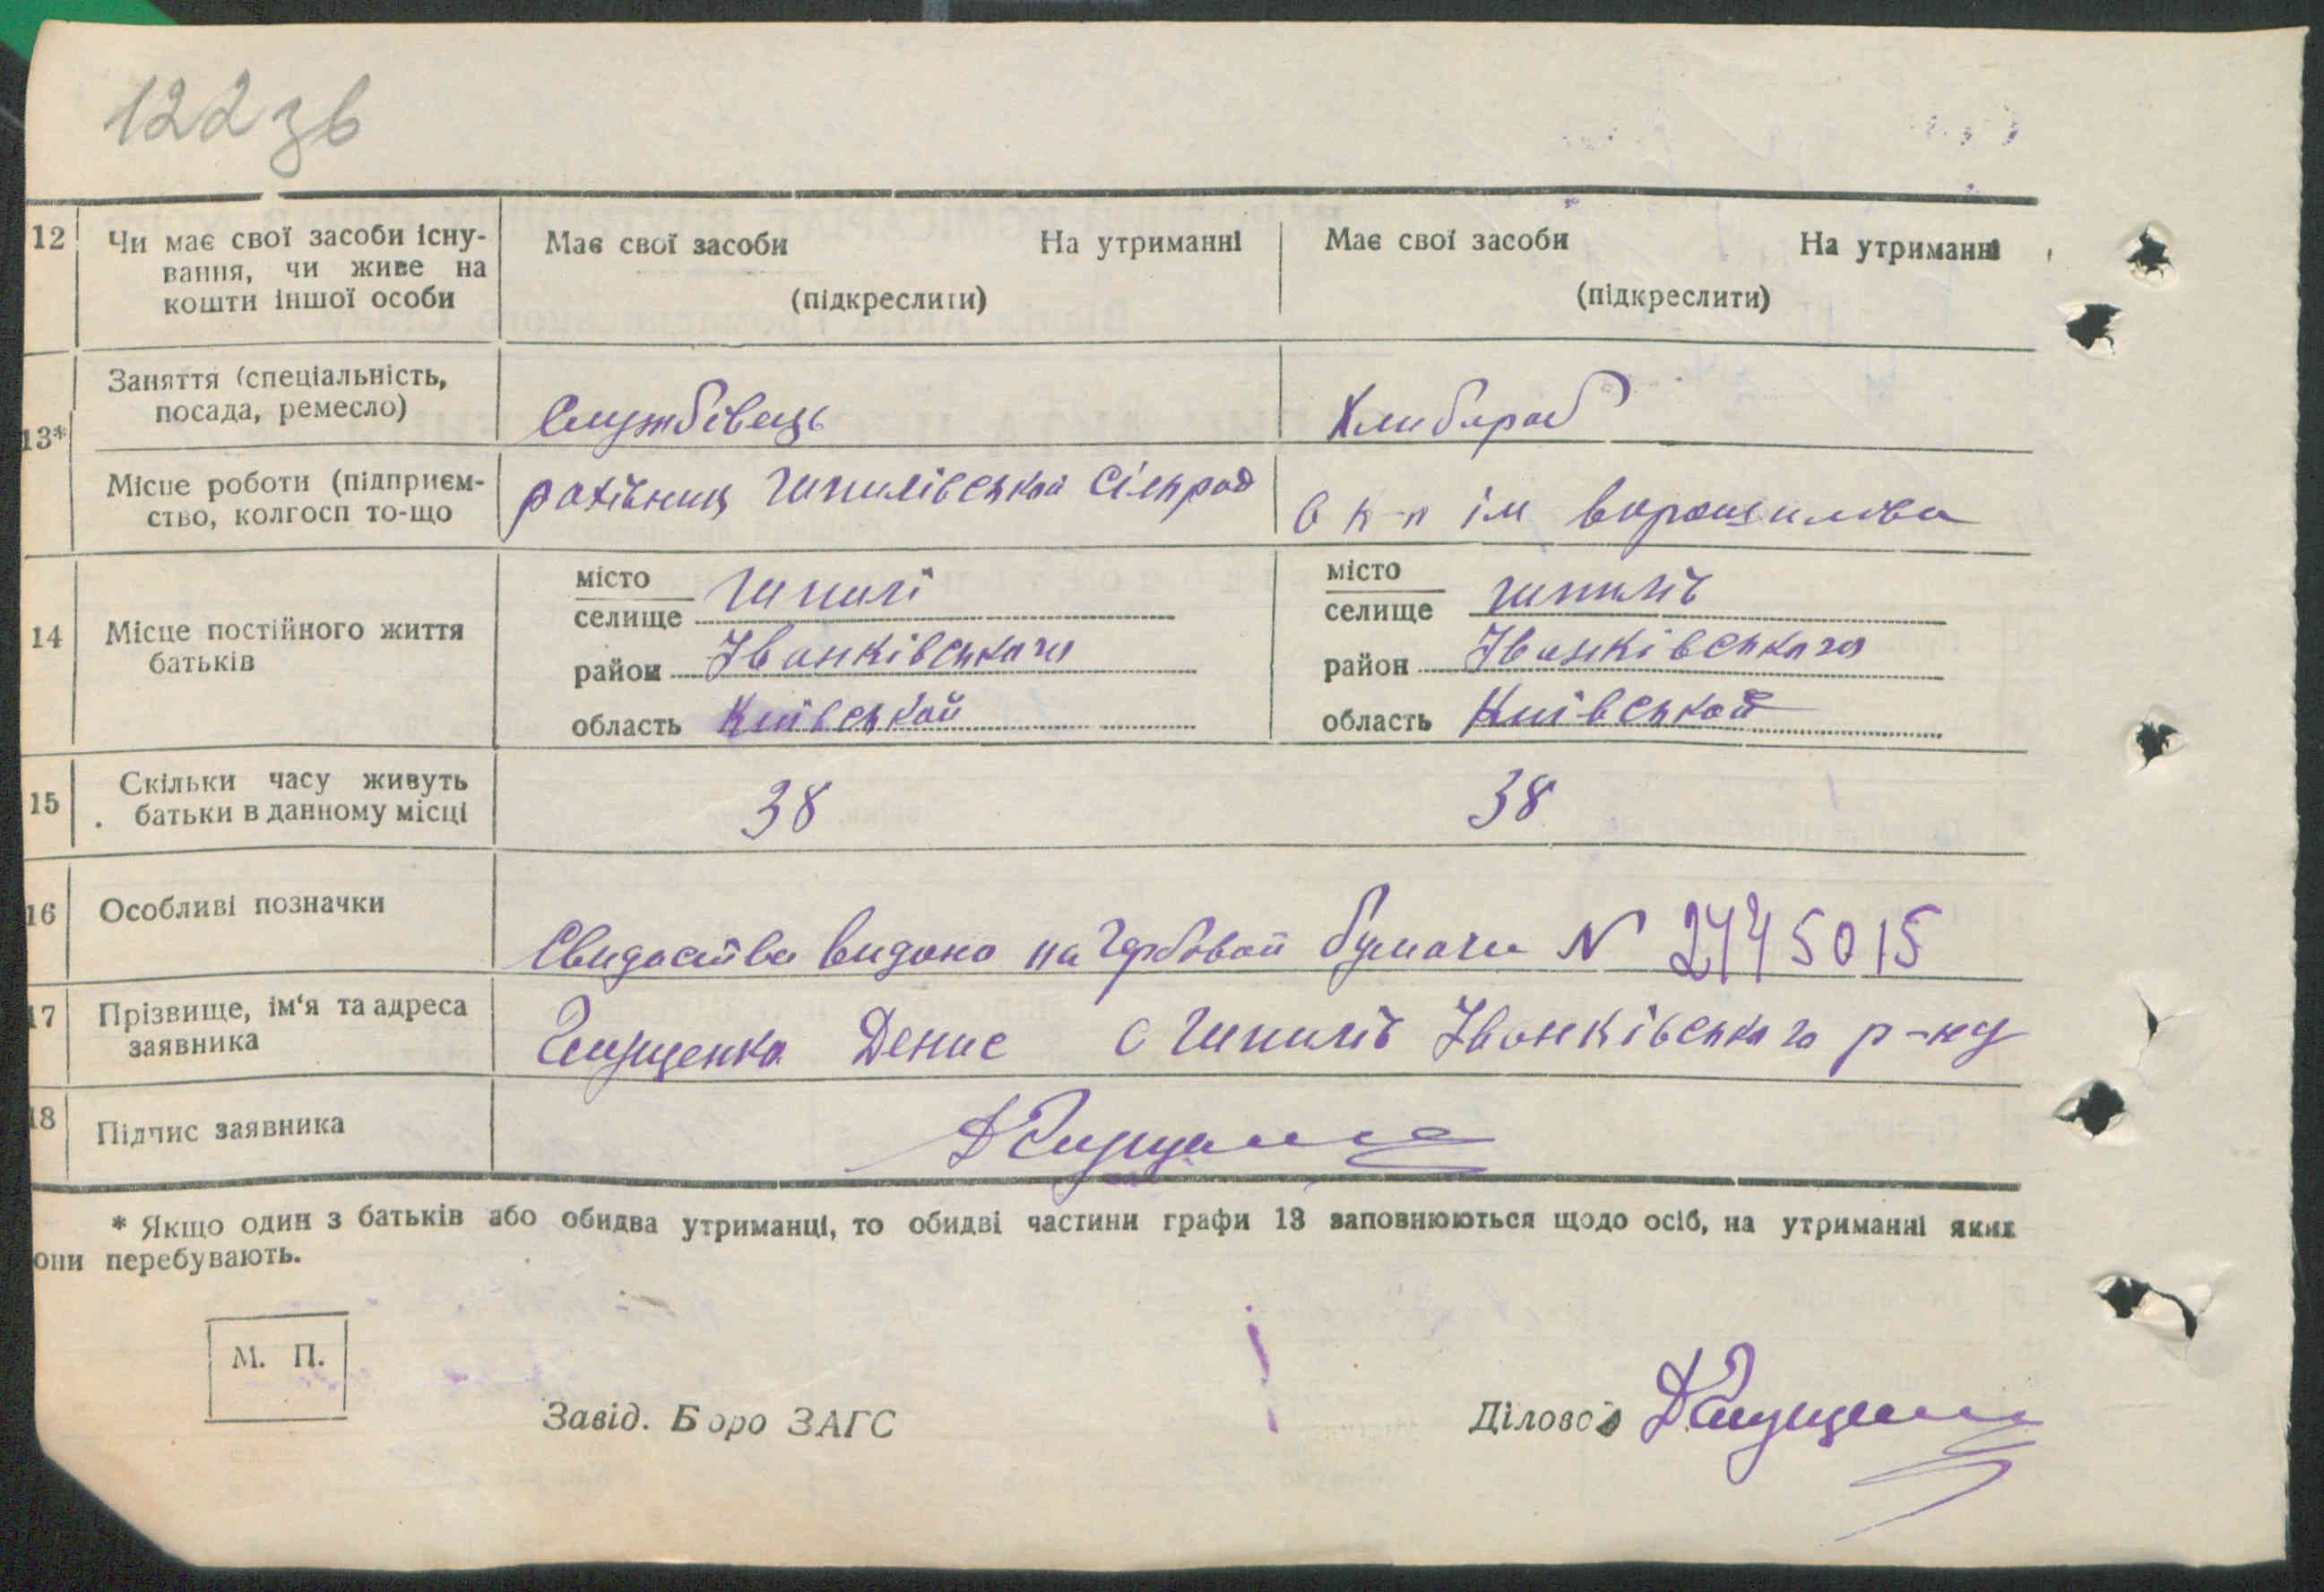 122 зв
12 Чи має свої засоби існу-вання, чи живе на кошти іншої особи
Має свої засоби На утриманні
(підкреслити)
Має свої засоби На утриманні
(підкреслити)
13* Заняття (спеціальність,
посада, ремесло)
Службівець
Хлибароб
Місце роботи (підприєм-
ство, колгосп то-що
рахівник Шпилівськой Сільрад
в к-п ім ворошилова
14 Місце постійного життя
батьків
місто
селище Шпилі
район Іванківського
область Київськой
місто
селище Шпилів
район Іванківського
область Київськой
15 Скільки часу живуть
батьки в данному місці
38
38
16 Особливі позначки
Свидоства видоно на Гербовой бумаги N 2445015
17 Прізвище, ім'я та адреса
заявника
Денис с Шпилів Іванківського р-ну
18 Підпис заявника
* Якщо один з батьків або обидва утриманці, то обидві частини графи 13 заповнюються щодо осіб, на утриманні яких
они перебувають.
М. П.
Завід. Бюро ЗАГС
Діловод